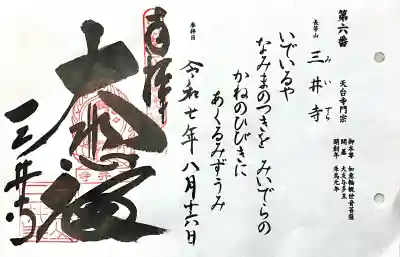 第六番
天台寺門宗
長等山
三井寺
みいでら
御本尊 如意輪観世音菩薩
開基 大友与多王
開創年 朱鳥元年
いでいるや
なみまのつきを みいでらの
かねのひびきに
あくるみずうみ
参拝日
令和七年八月十六日
奉拝
三井寺